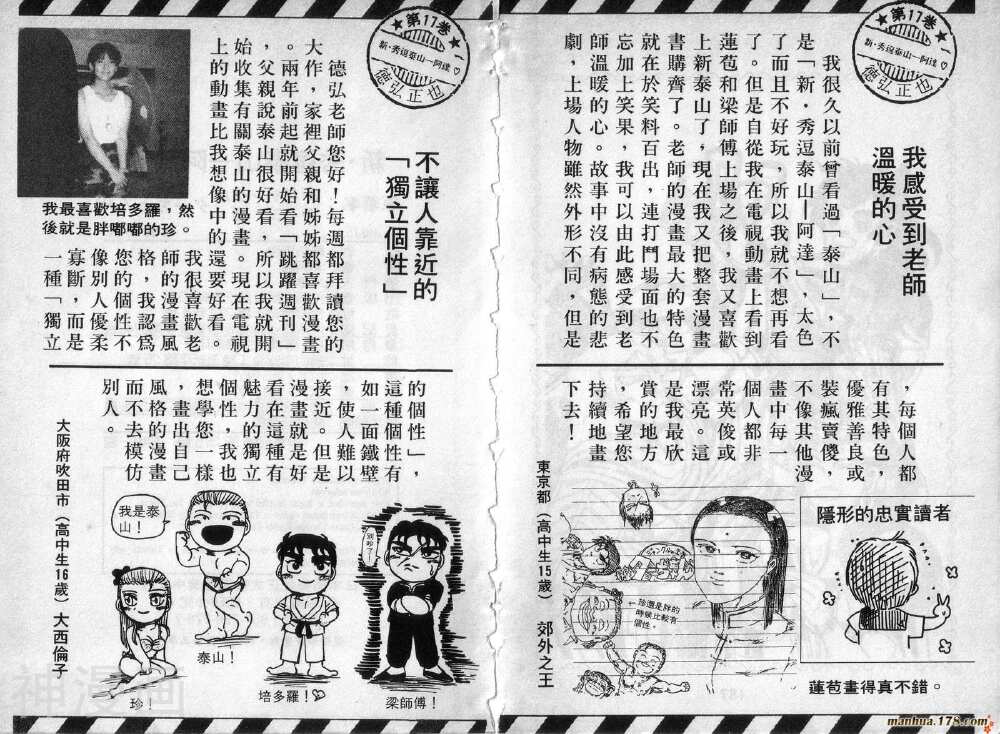 ★第17卷★
新・秀逗泰山—阿達
德弘正也
我感受到老師
溫暖的心
我很久以前曾看過「泰山」，不
是「新・秀逗泰山—阿達」，太色
了而且不好玩，所以我就不想再看
了。但是自從我在電視動畫上看到
蓮苞和梁師傅上場之後，我又喜歡
上新泰山了，現在我又把整套漫畫
書購齊了。老師的漫畫最大的特色
就在於笑料百出，連打鬥場面也不
忘加上笑果，我可以由此感受到老
師溫暖的心。故事中沒有病態的悲
劇，上場人物雖然外形不同，但是
，每個人都
有其特色，
優雅善良或
裝瘋賣傻，
不像其他漫
畫中每一
個人都非
常英俊或
漂亮。這
是我最欣
賞的地方
，希望您
持續地畫
下去！
東京都（高中生15歲） 郊外之王
隱形的忠實讀者
←珍還是胖的
時候比較有
個性。
蓮苞畫得真不錯。
★第17卷★
新・秀逗泰山—阿達
德弘正也
不讓人靠近的
「獨立個性」
德弘老師您好！每週都拜讀您的
大作，家裡父親和姊姊都喜歡漫畫
。兩年前起就開始看「跳躍週刊」
，父親說泰山很好看，所以我就開
始收集有關泰山的漫畫。現在電視
上的動畫比我想像中的還要好看。
我很喜歡老
師的漫畫風
格，我認為
您的個性不
像別人優柔
寡斷，而是
一種「獨立
的個性」，
這種個性有
如一面鐵壁
，使人難以
接近。但是
漫畫就是好
看在這種有
魅力的獨立
個性，我也
想學您一樣
，畫出自己
風格的漫畫
而不去模仿
別人。
大阪府吹田市（高中生16歲） 大西倫子
我最喜歡培多羅，然
後就是胖嘟嘟的珍。
我是泰
山！
別吵了！
珍！
泰山！
培多羅！♡
梁師傅！
神漫画
manhua.178.com